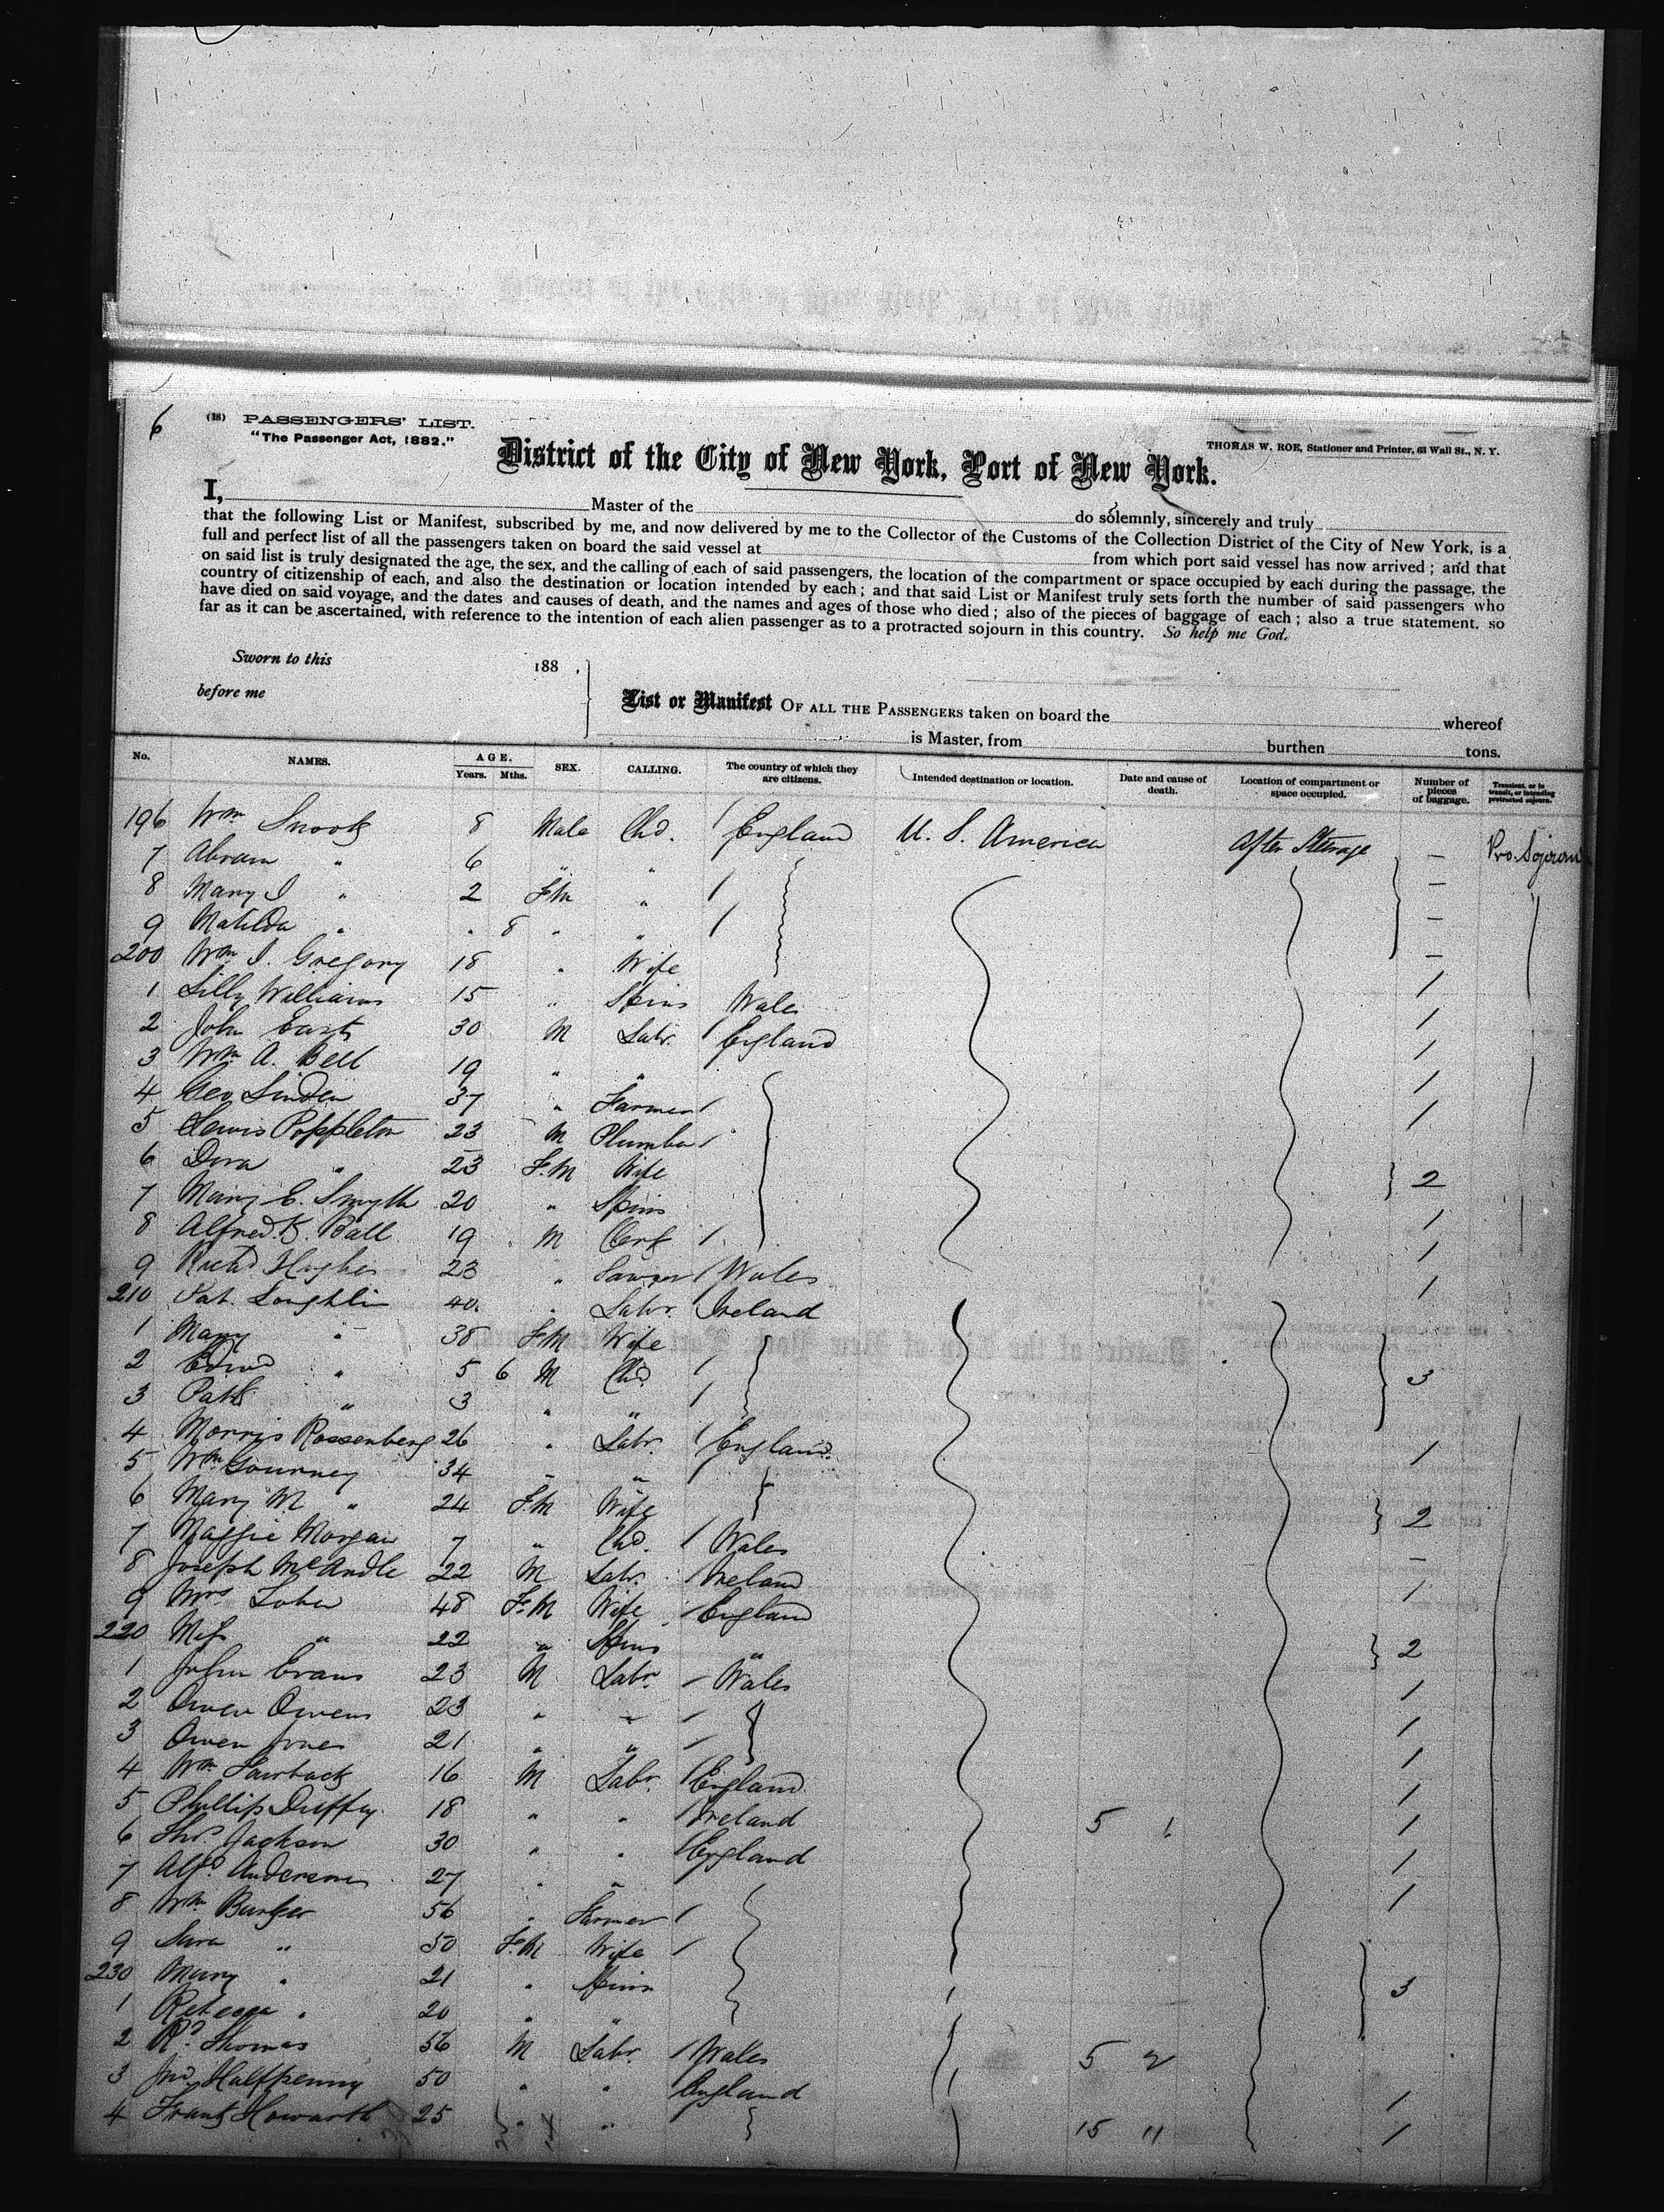 6
(18) PASSENGERS' LIST.
"The Passenger Act, 1882."
THOMAS W. ROE, Stationer and Printer, 63 Wall St., N. Y.
District of the City of New York, Port of New York.
I, Master of the do solemnly, sincerely and truly
that the following List or Manifest, subscribed by me, and now delivered by me to the Collector of the Customs of the Collection District of the City of New York, is a
full and perfect list of all the passengers taken on board the said vessel at from which port said vessel has now arrived ; and that
on said list is truly designated the age, the sex, and the calling of each of said passengers, the location of the compartment or space occupied by each during the passage, the
country of citizenship of each, and also the destination or location intended by each ; and that said List or Manifest truly sets forth the number of said passengers who
have died on said voyage, and the dates and causes of death, and the names and ages of those who died ; also of the pieces of baggage of each ; also a true statement, so
far as it can be ascertained, with reference to the intention of each alien passenger as to a protracted sojourn in this country. So help me God.
Sworn to this 188 .
before me
List or Manifest OF ALL THE PASSENGERS taken on board the whereof
is Master, from burthen tons.
No. NAMES. AGE. Years. Mths. SEX. CALLING. The country of which they are citizens. Intended destination or location. Date and cause of death. Location of compartment or space occupied. Number of pieces of baggage. Transient, or in transit, or intending protracted sojourn.
196 Wm Snook 8 Male Chd. / England U. S. America After Steerage – Pro. Sojourn
7 Abram " 6 " " –
8 Mary J " 2 Fm " / –
9 Matilda " . 8 " " / –
200 Wm J. Gregory 18 " Wife 1
1 Lilly Williams 15 " Spins Wales 1
2 John East 30 M Labr. / England 1
3 Wm A. Bell 19 " " 1
4 Geo Linden 37 " Farmer / 1
5 Lewis Poppleton 23 M Plumber /
6 Dora " 23 F.M Wife 2
7 Mary E. Smyth 20 " Spins 1
8 Alfred K. Ball 19 M Clerk / 1
9 Richd Hughes 23 " Sawyer / Wales 1
210 Pat. Loughlin 40 " Labr. Ireland
1 Mary " 38 F.M Wife
2 Edwd " 5 6 M Chd. / 3
3 Patk " 3 " " /
4 Morris Rossenberg 26 " Labr. / England 1
5 Wm Gourney 34 " "
6 Mary M " 24 F.M Wife 2
7 Maggie Morgan 7 " Chd. / Wales –
8 Joseph McArdle 22 M Labr. / Ireland 1
9 Mrs Lober 48 F.M Wife / England
220 Miss " 22 " Spins " 2
1 John Evans 23 M Labr. / Wales 1
2 Owen Owens 23 " " / 1
3 Owen Jones 21 " " / 1
4 Wm 16 M Labr. / England 1
5 Phillip Duffy 18 " " / Ireland 5 1
6 Thos. Jackson 30 " " / England 1
7 Alfd. Anderson 27 " " 1
8 Wm Barker 56 " Farmer /
9 Sara " 50 F.M Wife /
230 Mary " 21 " Spins 3
1 Rebecca " 20 " "
2 Rd. Thomas 56 M Labr. / Wales 5
3 Jno. Halfpenny 50 " " England 1
4 Frank Howarth 25 " " 15 11 1